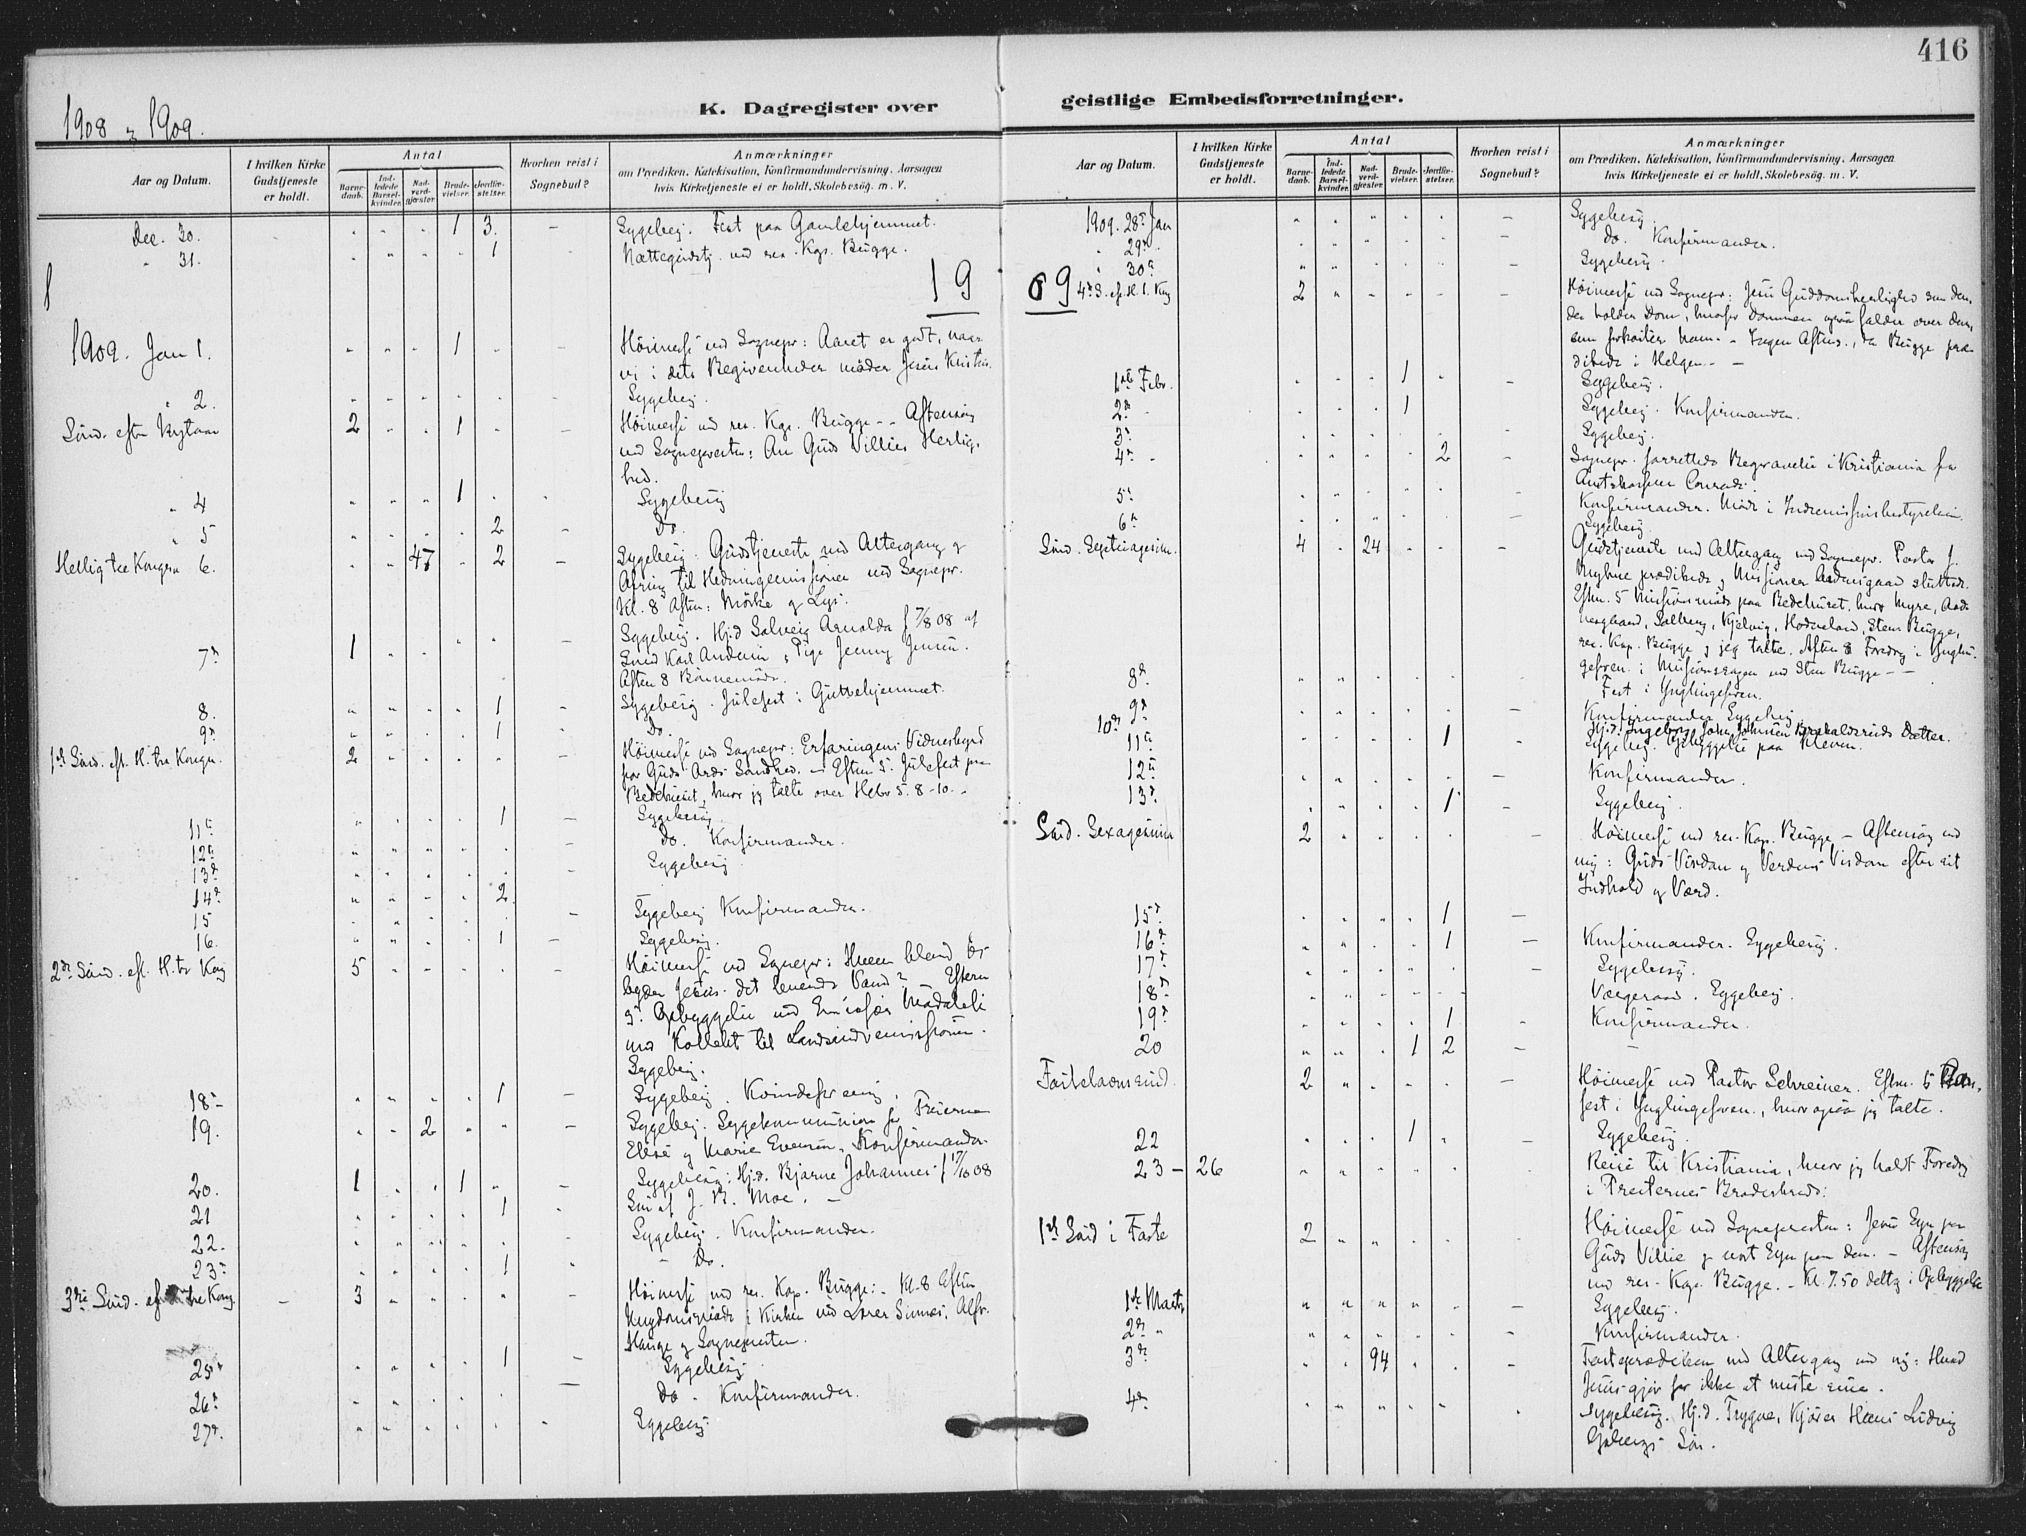 416
1908 & 1909.
K. Dagregister over
geistlige Embedsforretninger.
Aar og Datum.
I hvilken Kirke Gudstjeneste er holdt.
Antal
Barnedaab.
Indledede Barselkvinder.
Nadverdgjæster.
Brudevielser.
Jordfæstelser.
Hvorhen reist i Sognebud?
Anmærkninger
om Prædiken, Katekisation, Konfirmandundervisning, Aarsagen
hvis Kirketjeneste ei er holdt, Skolebesøg. m. V.
Dec. 30. 1 3. Sygebesøg. Fest paa Gamlehjemmet.
" 31. 1 Nattegudstj. ved res. Kap. Bugge.
19
1909. Jan 1. 1 Höimesse ved Sognepr: Aaret er godt, naar
vi i dets Begivenheder möder Jesus Kristus.
" 2. Sygebesög.
Sönd. efter Nytaar 2 1 Höimesse ved res. Kap. Bugge - Aftensang
ved Sognepresten: Guds Villies Herlig-
hed.
" 4 1 Sygebesög
" 5 2 Do.
Hellig tre Konger 6. 47 2 Sygebesög. Gudstjeneste med Altergang &
Ofring til Hedningemissionen ved Sognepr.
Kl. 8 Aften: Mörke og Lys.
7de 1 Sygebesög. Hj.d Solveig Arnolda f 7/8 08 af
Smed Karl Andersen & Pige Jenny Jensen.
Aften 8 Bönnemöde.
8. 1 Sygebesög. Julefest i Guttehjemmet.
9de 1 Do.
1ste Sönd. eft. H. tre Konger. 2 Höimesse ved Sognepr: Erfaringens Vidnesbyrd
for Guds Ords Sandhed. - Efterm 5. Julefest paa
Bedehuset, hvor jeg talte over Hebr 5. 8-10. -
11te 1 Sygebesög.
12te Do. Konfirmander.
13de Sygebesög
14de 2
15 Sygebesög Konfirmander.
16. 1 Sygebesög.
2den Sönd. eft. H. tre Kong 5 Höimesse ved Sognepr: Hvem iblandt os
Jesus det levende Vand? Efterm
5. Opbyggelse ved
med Kollekt til Landsindremissionen.
Sygebesög.
18de 1 Sygebesög. Kvindeforening.
19. 2 Sygebesög. Sygekommunion for
Elise og Marie Evensen. Konfirmander.
20. 1 1 Sygebesög: Hj.d. Bjarne Johannes f 17/10 08
21 1 Sön af J. B. Moe.
22. Sygebesög. Konfirmander.
23de 1 Do.
3die Sönd. ef H tre Kong. 3 Höimesse ved res. Kap. Bugge: - Kl. 8 Aften
Ungdomsmöde i Kirken ved Lærer Alfr.
Hauge og Sognepresten.
25de 1 Sygebesög.
26de Do. Konfirmander.
27de. Sygebesög.
Aar og Datum.
I hvilken Kirke Gudstjeneste er holdt.
Antal
Barnedaab.
Indledede Barselkvinder.
Nadverdgjæster.
Brudevielser.
Jordfæstelser.
Hvorhen reist i Sognebud?
Anmærkninger
om Prædiken, Katekisation, Konfirmandundervisning, Aarsagen
hvis Kirketjeneste ei er holdt, Skolebesøg. m. V.
1909. 28de Jan Sygebesög.
" 29de Do. Konfirmander.
" 30te Sygebesög.
09
4de S. ef. H. 3. Kong 2 Höimesse ved Sognepr: Jesu Guddomsherlighed som den,
der holder Dom, hvorfor Dommen ogsaa falder over dem,
som forkaster ham. - Ingen Aftens., da Bugge præ-
dikede i Helgen. -
1ste Febr. 1 Sygebesög.
2de - 1 Sygebesög. Konfirmander.
3de Sygebesög.
4de - 2 Sognepr. forrettede Begravelse i Kristiania for
Amtskasserer Conradi.
5te Konfirmander. Möde i Indremissionsbestyrelsen.
6te Sygebesög.
Sönd. Septuagesima. 4 24 Gudstjeneste med Altergang ved Sognepr. Pastor J.
Myhre prædikede & Missionær sluttede.
Efterm. 5 Missionsmöde paa Bedehuset, hvor Myre,
Solberg, Kjelvig, Sten Bugge,
res. Kap. Bugge & jeg talte. Aften 8 Foredrag i Yngl.-
geforen. i Missionssagen ved Sten Bugge -
8de Fest i Ynglingeforen.
9de Konfirmander Sygebesög
10de Hj.d. Ingeborg, John Johnsen Datter.
11te 1 Sygebesög. Opbyggelse paa Kleven.
12te Konfirmander.
13de. 1 Sygebesög.
Sönd. Sexagesima 2 Höimesse ved res. Kap. Bugge - Aftensang ved
mig: Guds Visdom & Verdens Visdom efter sit
Indhold & Værd.
15de 1
16de. 1 Konfirmander. Sygebesög.
17de Sygebesög.
18de Vergeraad. Sygebesög.
19de 1 Konfirmander.
20 1 2
Fastelavnssönd. 2 Höimesse ved Pastor Schreiner. Efterm. 5
fest i Ynglingeforen., hvor ogsaa jeg talte.
22 1 Sygebesög.
23 - 26 Reise til Kristiania, hvor jeg holdt Foredrag
i Presternes Broderkreds.
1ste Sönd i Faste 2 Höimesse ved Sognepresten: Jesu Syn paa
Guds Villie & vort Syn paa den. - Aftensang
ved res. Kap. Bugge. - Kl. 7.50 deltog i Opbyggelse
1ste Marts Sygebesög.
2den " Konfirmander.
3die 94 Fasteprædiken med Altergang ved mig: Hvad
Jesus gjör for ikke at miste sine.
4de Sygebesög. Hj.d. Trygve, Kjörer Hans Ludvig
Sön.